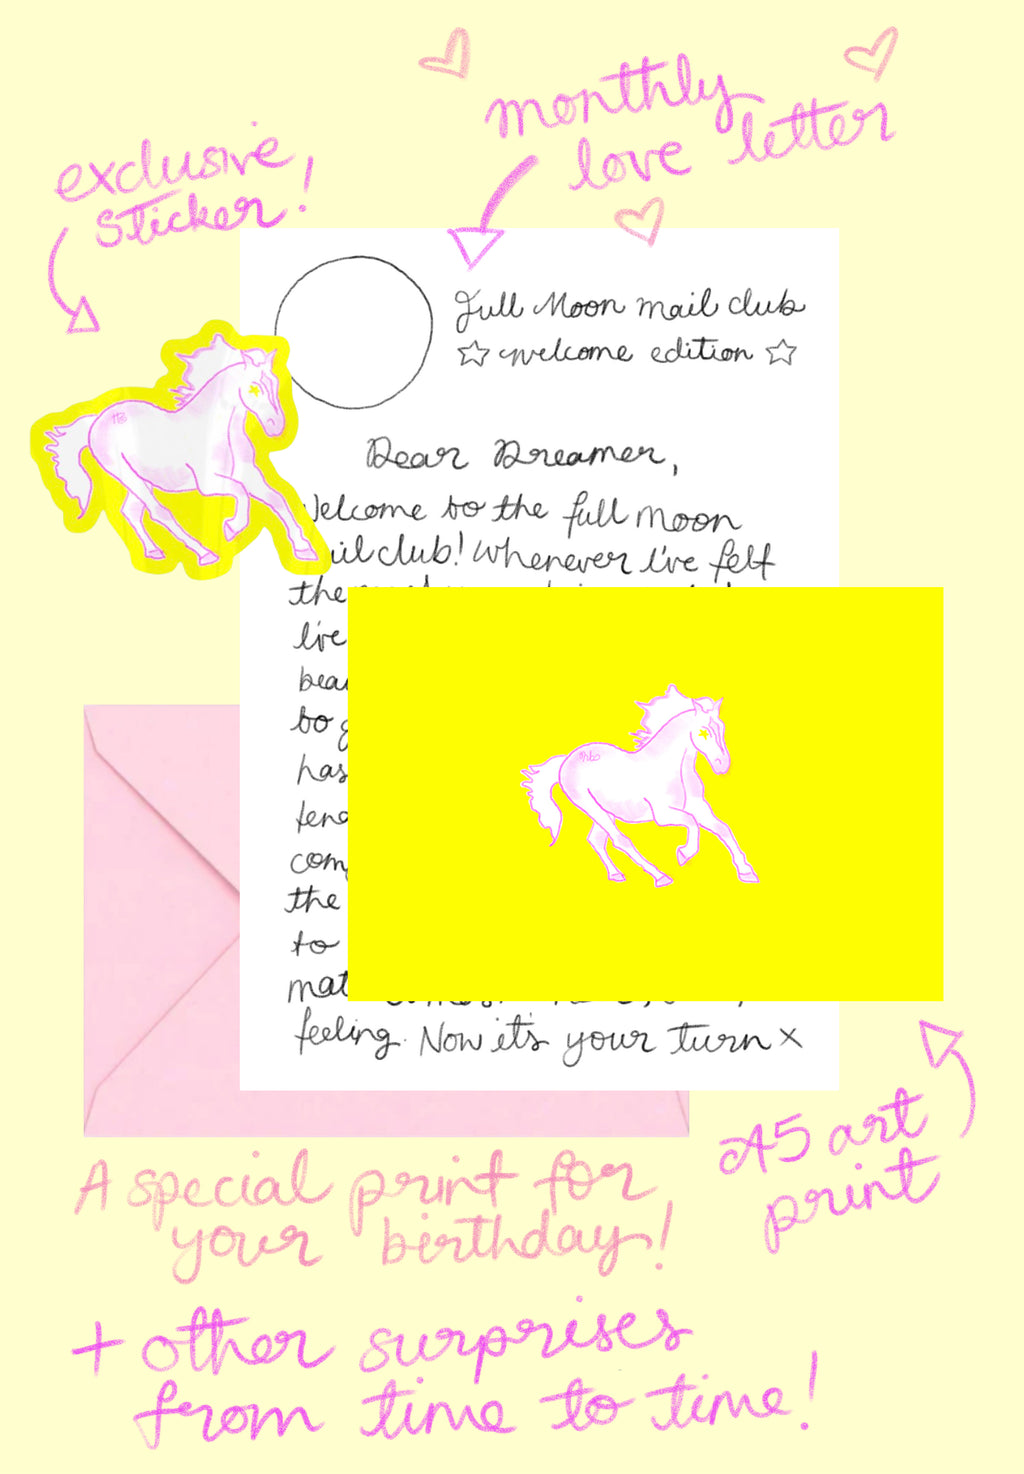 monthly
love letter
exclusive
sticker!
Full Moon mail club
☆ welcome edition ☆
Dear Dreamer,
Welcome to the full moon
ail club! Whenever I've felt
the
I've
bea
to g
has
tend
com
the
to
mat
feeling. Now it's your turn x
A5 art
print
A special print for
your birthday!
+ other surprises
from time to time!